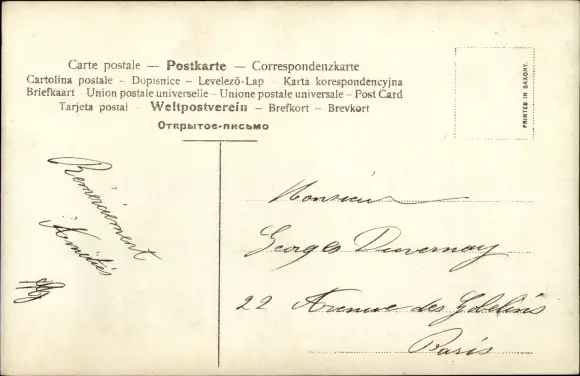 Carte postale — Postkarte — Correspondenzkarte
Cartolina postale – Dopisnice – Levelező-Lap – Karta korespondencyjna
Briefkaart – Union postale universelle – Unione postale universale – Post Card
Tarjeta postal – Weltpostverein – Brefkort – Brevkort
Открытое-письмо
PRINTED IN SAXONY.
Remerciement
Amitiés
Monsieur
Georges Duvernay
22 Avenue des Gobelins
Paris